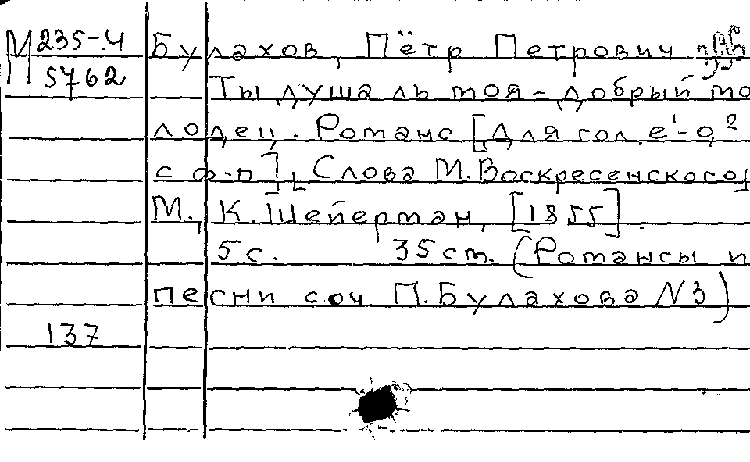 М 235-4
5762
Булахов, Пётр Петрович
Ты душа ль моя - добрый мо
лодец. Романс [для гол. e¹-g²
с ф.-п]. [Слова М. Воскресенского]
М., К. Шейерман, [1855].
5 с. 35 см. (Романсы и
песни соч. П. Булахова N3)
137